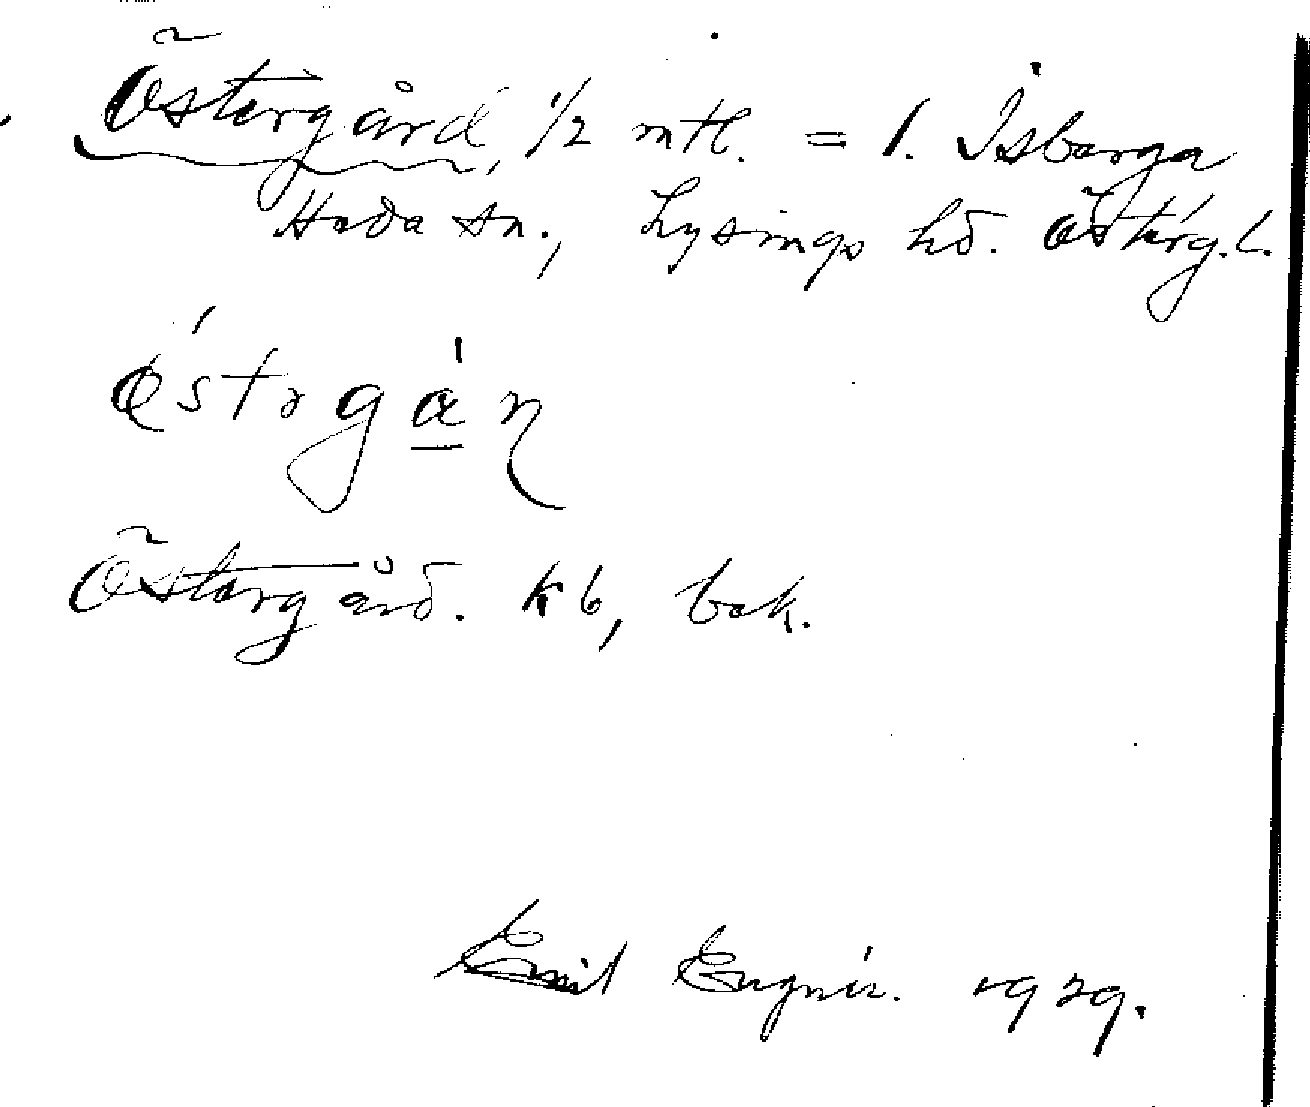 Östergård, 1/2 mtl. = 1. Isberga
Heda sn., Lysings hd. Österg. l.
Östergård. kb, bok.
Emil Engnér. 1929.